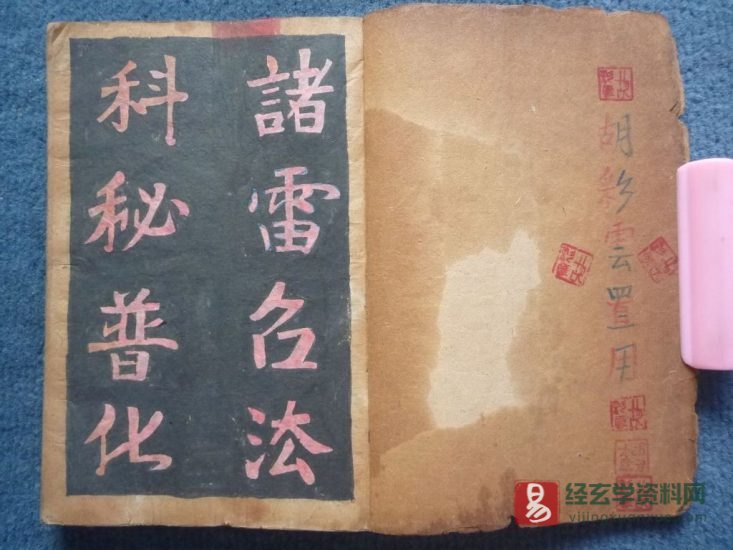 胡彩雲置用
諸雷召法
科秘普化
易
经玄学资料网